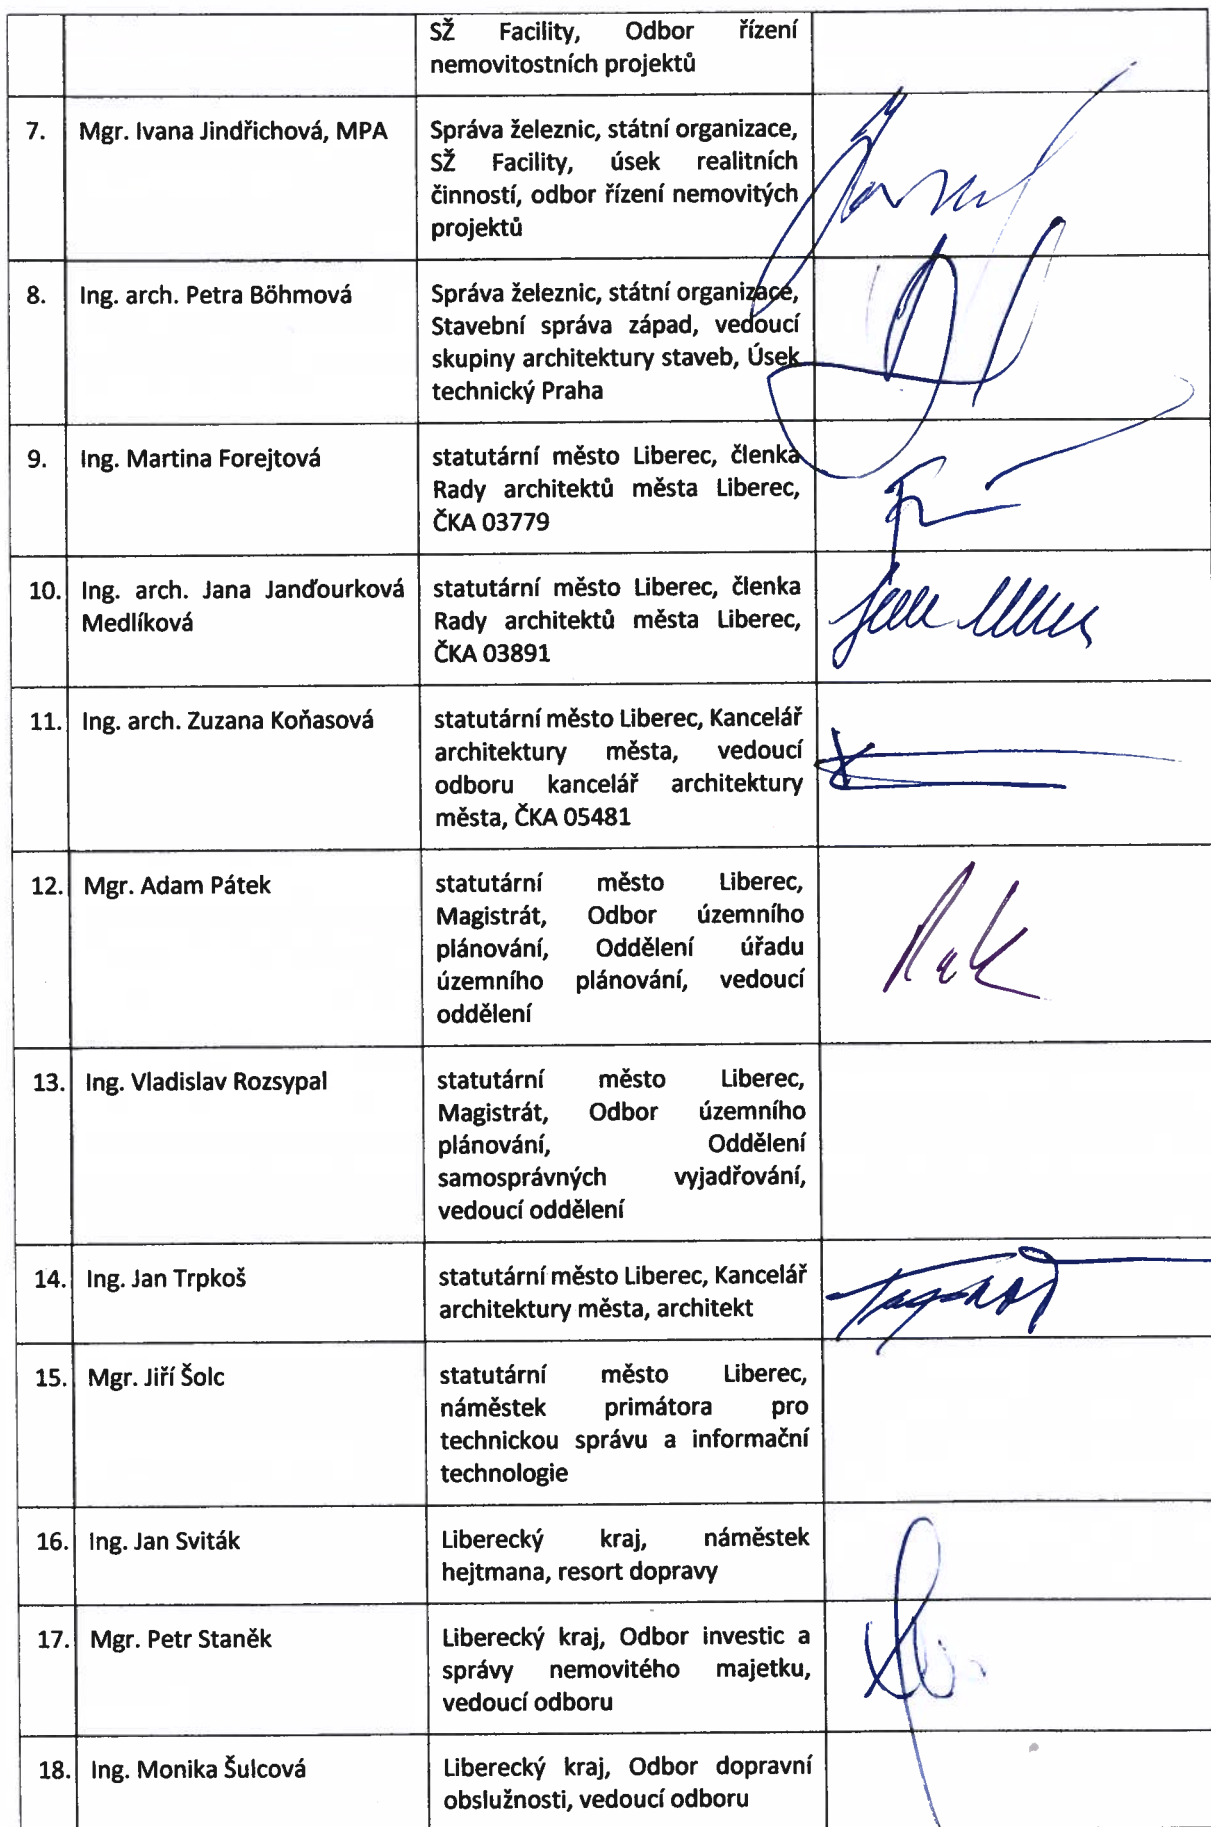 SŽ Facility, Odbor řízení
nemovitostních projektů
7. Mgr. Ivana Jindřichová, MPA
Správa železnic, státní organizace,
SŽ Facility, úsek realitních
činností, odbor řízení nemovitých
projektů
8. Ing. arch. Petra Böhmová
Správa železnic, státní organizace,
Stavební správa západ, vedoucí
skupiny architektury staveb, Úsek
technický Praha
9. Ing. Martina Forejtová
statutární město Liberec, členka
Rady architektů města Liberec,
ČKA 03779
10. Ing. arch. Jana Janďourková
Medlíková
statutární město Liberec, členka
Rady architektů města Liberec,
ČKA 03891
11. Ing. arch. Zuzana Koňasová
statutární město Liberec, Kancelář
architektury města, vedoucí
odboru kancelář architektury
města, ČKA 05481
12. Mgr. Adam Pátek
statutární město Liberec,
Magistrát, Odbor územního
plánování, Oddělení úřadu
územního plánování, vedoucí
oddělení
13. Ing. Vladislav Rozsypal
statutární město Liberec,
Magistrát, Odbor územního
plánování, Oddělení
samosprávných vyjadřování,
vedoucí oddělení
14. Ing. Jan Trpkoš
statutární město Liberec, Kancelář
architektury města, architekt
15. Mgr. Jiří Šolc
statutární město Liberec,
náměstek primátora pro
technickou správu a informační
technologie
16. Ing. Jan Sviták
Liberecký kraj, náměstek
hejtmana, resort dopravy
17. Mgr. Petr Staněk
Liberecký kraj, Odbor investic a
správy nemovitého majetku,
vedoucí odboru
18. Ing. Monika Šulcová
Liberecký kraj, Odbor dopravní
obslužnosti, vedoucí odboru